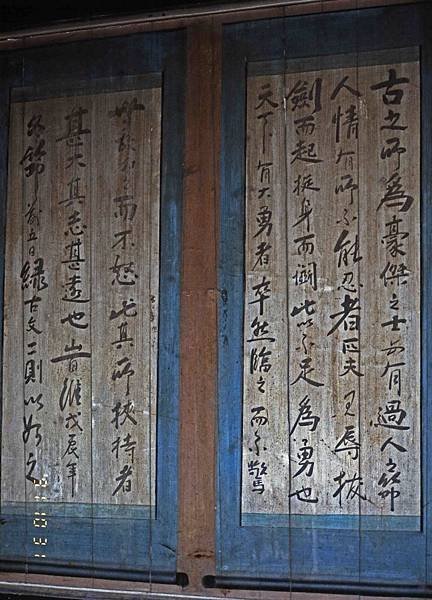 古之所為豪傑之士必有過人之節
人情有所不能忍者匹夫見辱拔
劍而起挺身而鬪此不足為勇也
天下有大勇者卒然臨之而不驚
無故加之而不怒此其所挾持者
甚大其志甚遠也時維戊辰年
冬節前五日錄古文一則以